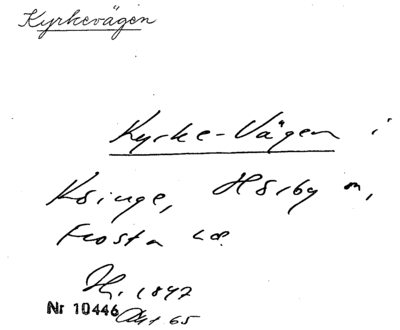 Kyrkevägen
Kyrke-Vägen i
Ksinge, Hörby sn,
Frosta hd.
1847
Nr 10446 Akt 65